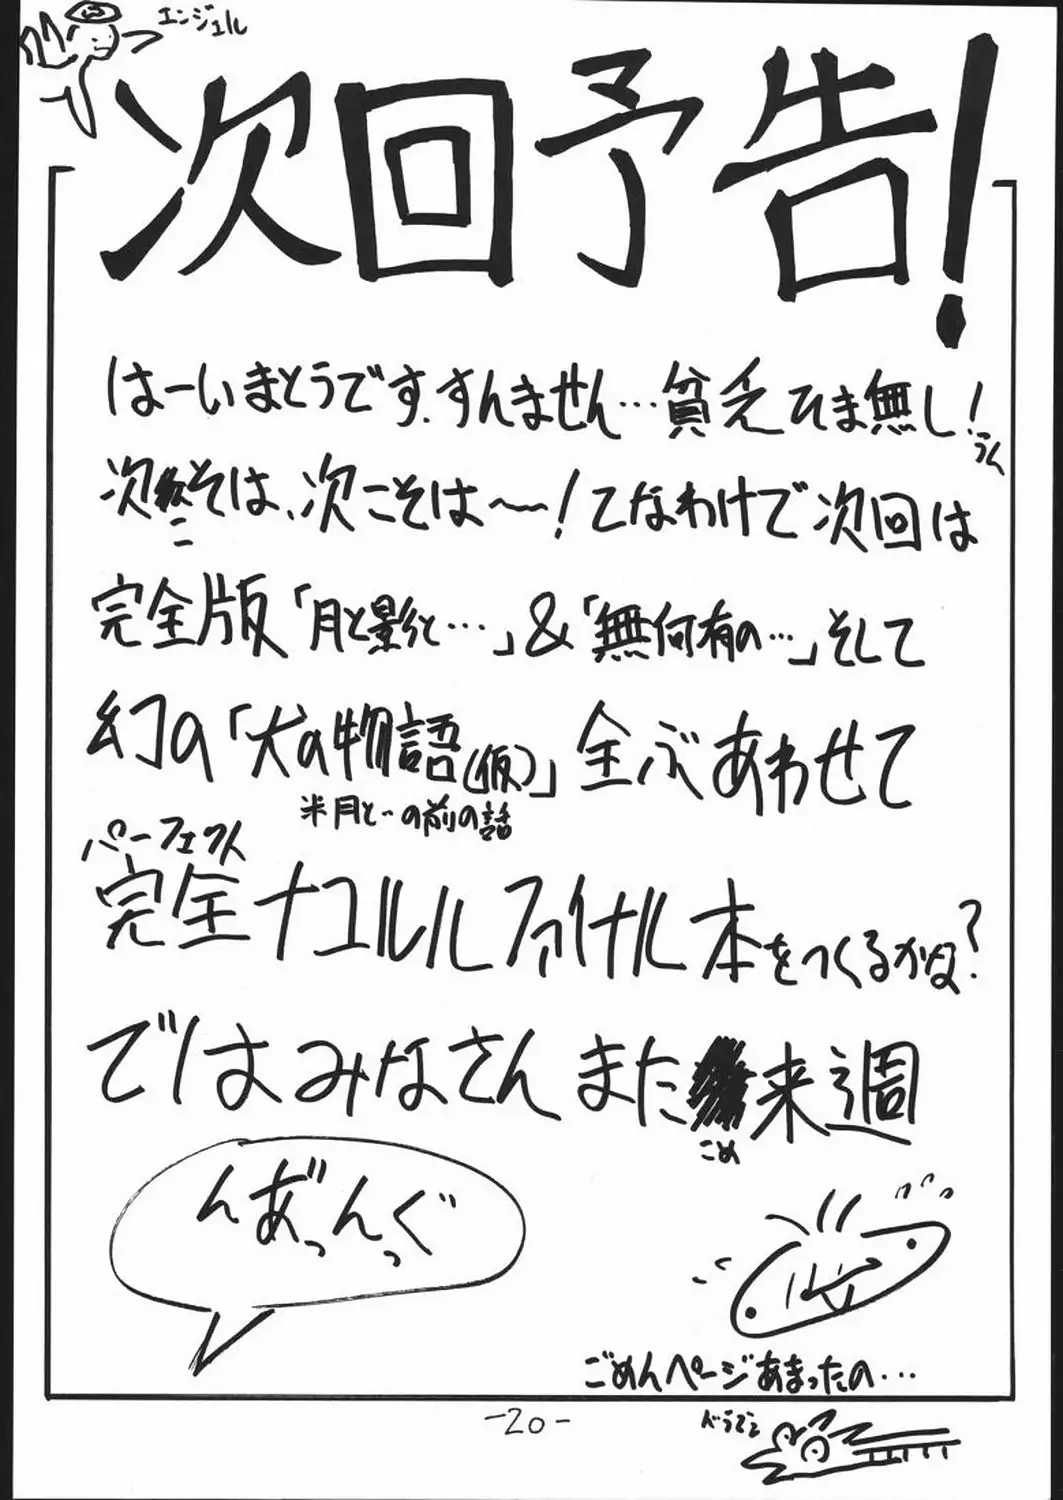 エンジェル
次回予告!
はーいまとうです、すんません…貧乏ひま無し!
うん
次こそは、次こそは〜!てなわけで次回は
完全版「月と影と…」&「無何有の…」そして
幻の「犬の物語(仮)」全ぶあわせて
※月と…の前の話
パーフェクト
完全ナコルルファイナル本をつくるかな?
ではみなさんまた来週
ごめ
んがっんっぐ
ごめんページあまったの…
-20-